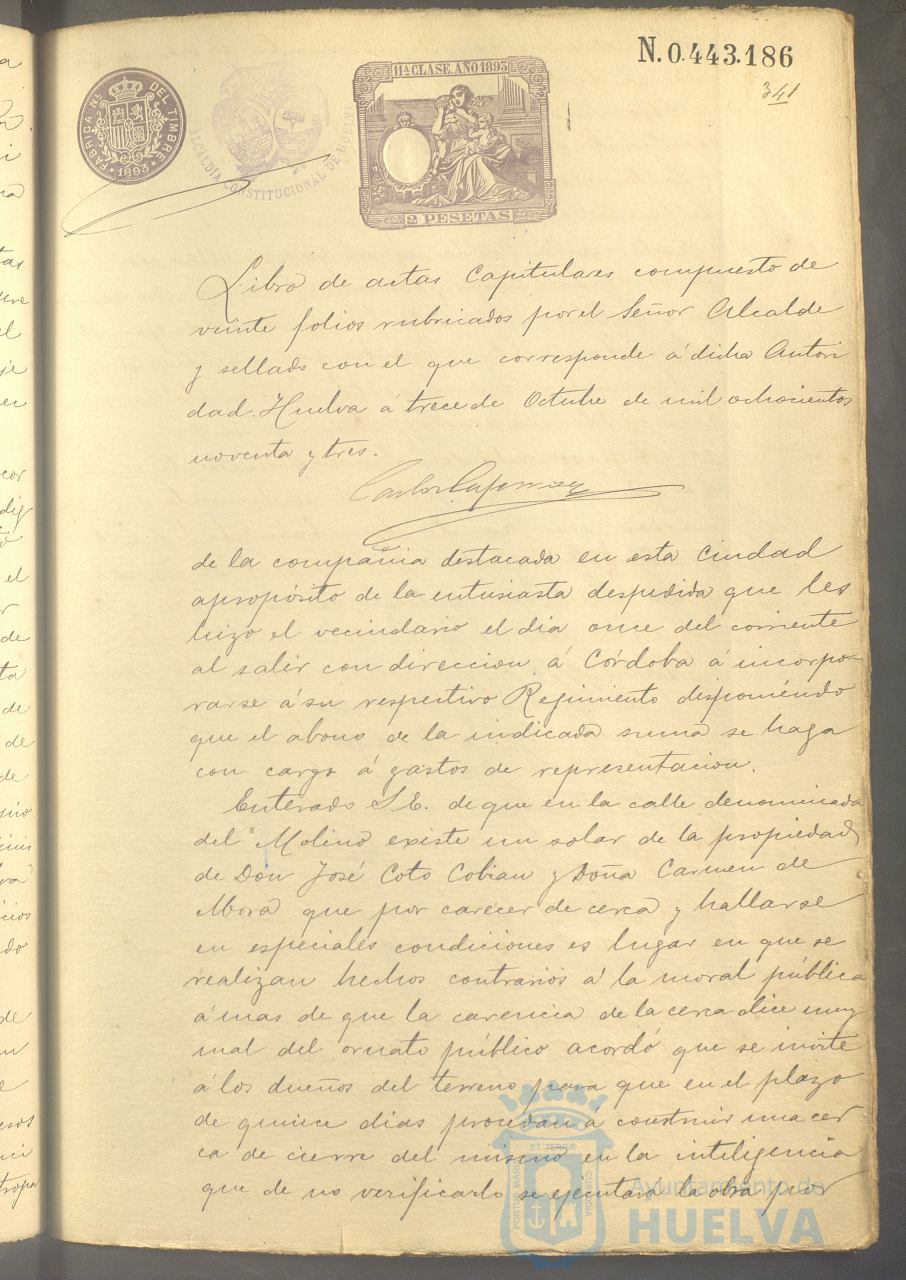 N. 0.443.186
341
FABRICA NL. DEL TIMBRE
1893
ALCALDÍA CONSTITUCIONAL DE HUELVA
11ª CLASE. AÑO 1893
2 PESETAS
Libro de actas Capitulares compuesto de
veinte folios rubricados por el Señor Alcalde
y sellado con el que corresponde á dicha Autori
dad. Huelva á trece de Octubre de mil ochocientos
noventa y tres.
Carlos
de la compañia destacada en esta Ciudad
apropósito de la entusiasta despedida que les
hizo el vecindario el dia once del corriente
al salir con direccion á Córdoba á incorpo
rarse á su respectivo Regimiento disponiéndo
que el abono de la indicada suma se haga
con cargo á gastos de representacion.
Enterado S. E. de que en la calle denominada
del Molino existe un solar de la propiedad
de Don José Coto Cobian y Doña Carmen de
Mora que por carecer de cerca y hallarse
en especiales condiciones es lugar en que se
realizan hechos contrarios á la moral pública
á mas de que la carencia de la cerca dice muy
mal del ornato público acordó que se invite
á los dueños del terreno para que en el plazo
de quince dias procedan á construir una cer
ca de cierre del mismo en la inteligencia
que de no verificarlo se ejecutará la obra por
PORTUS MARIS ET TERRAE CUSTODIA
Ayuntamiento de
HUELVA